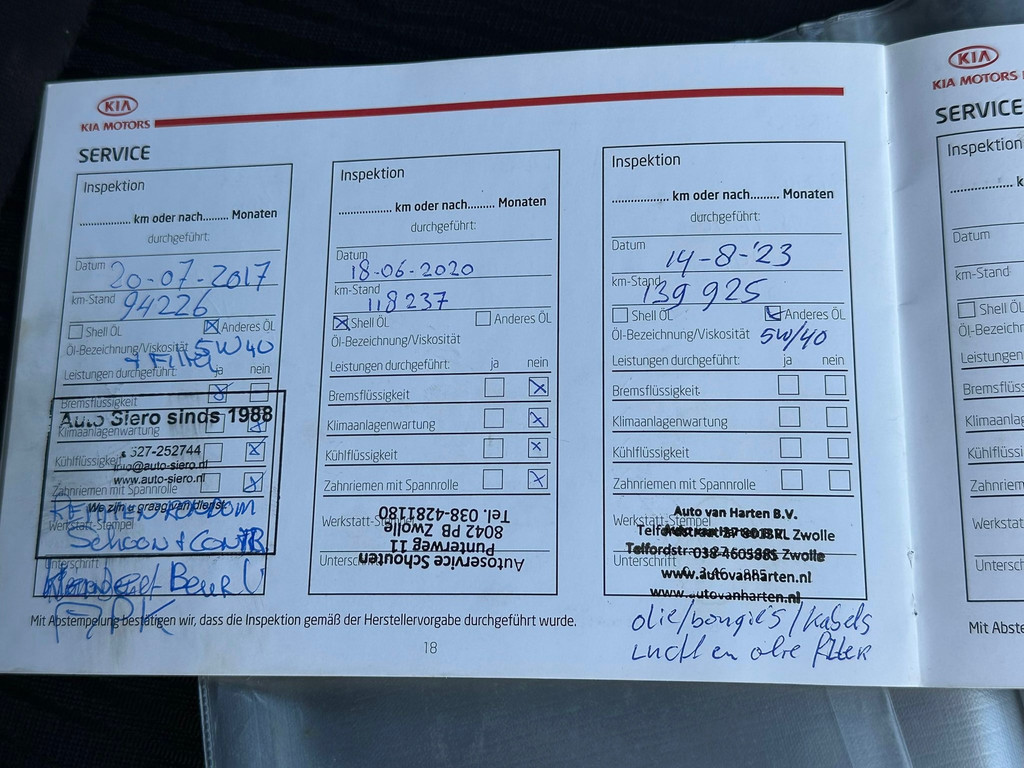 KIA
KIA MOTORS
SERVICE
Inspektion
.................. km oder nach......... Monaten
durchgeführt:
Datum 20-07-2017
km-Stand 94226
Shell ÖL Anderes ÖL
Öl-Bezeichnung/Viskosität 5W40
+ Filter
Leistungen durchgeführt: ja nein
Bremsflüssigkeit
Auto Siero sinds 1988
Klimaanlagenwartung
527-252744
Kühlflüssigkeit
info@auto-siero.nl
www.auto-siero.nl
Zahnriemen mit Spannrolle
We zijn u graag van dienst
REMMEN RONDOM
Werkstatt-Stempel
SCHOON + CONTR
Unterschrift
APK
Inspektion
.................. km oder nach......... Monaten
durchgeführt:
Datum 18-06-2020
km-Stand 118237
Shell ÖL Anderes ÖL
Öl-Bezeichnung/Viskosität
Leistungen durchgeführt: ja nein
Bremsflüssigkeit
Klimaanlagenwartung
Kühlflüssigkeit
Zahnriemen mit Spannrolle
Werkstatt-Stempel
Unterschrift
Autoservice Schouten
Punterweg 11
8042 PB Zwolle
Tel. 038-4281180
Inspektion
.................. km oder nach......... Monaten
durchgeführt:
Datum 14-8-'23
km-Stand 139 925
Shell ÖL Anderes ÖL
Öl-Bezeichnung/Viskosität 5W/40
Leistungen durchgeführt: ja nein
Bremsflüssigkeit
Klimaanlagenwartung
Kühlflüssigkeit
Zahnriemen mit Spannrolle
Auto van Harten B.V.
Werkstatt-Stempel
Zwolle
Telfordstr. Zwolle
Unterschrift
www.autovanharten.nl
www.autovanharten.nl
olie/bougies/kabels
Lucht en olie filter
Mit Abstempelung bestätigen wir, dass die Inspektion gemäß der Herstellervorgabe durchgeführt wurde.
18
KIA
KIA MOTORS
SERVICE
Inspektion
Datum
km-Stand
Shell ÖL
Öl-Bezeichn
Leistungen
Bremsflüss
Klimaanlag
Kühlflüssi
Zahnriem
Werkstatt
Untersch
Mit Abste